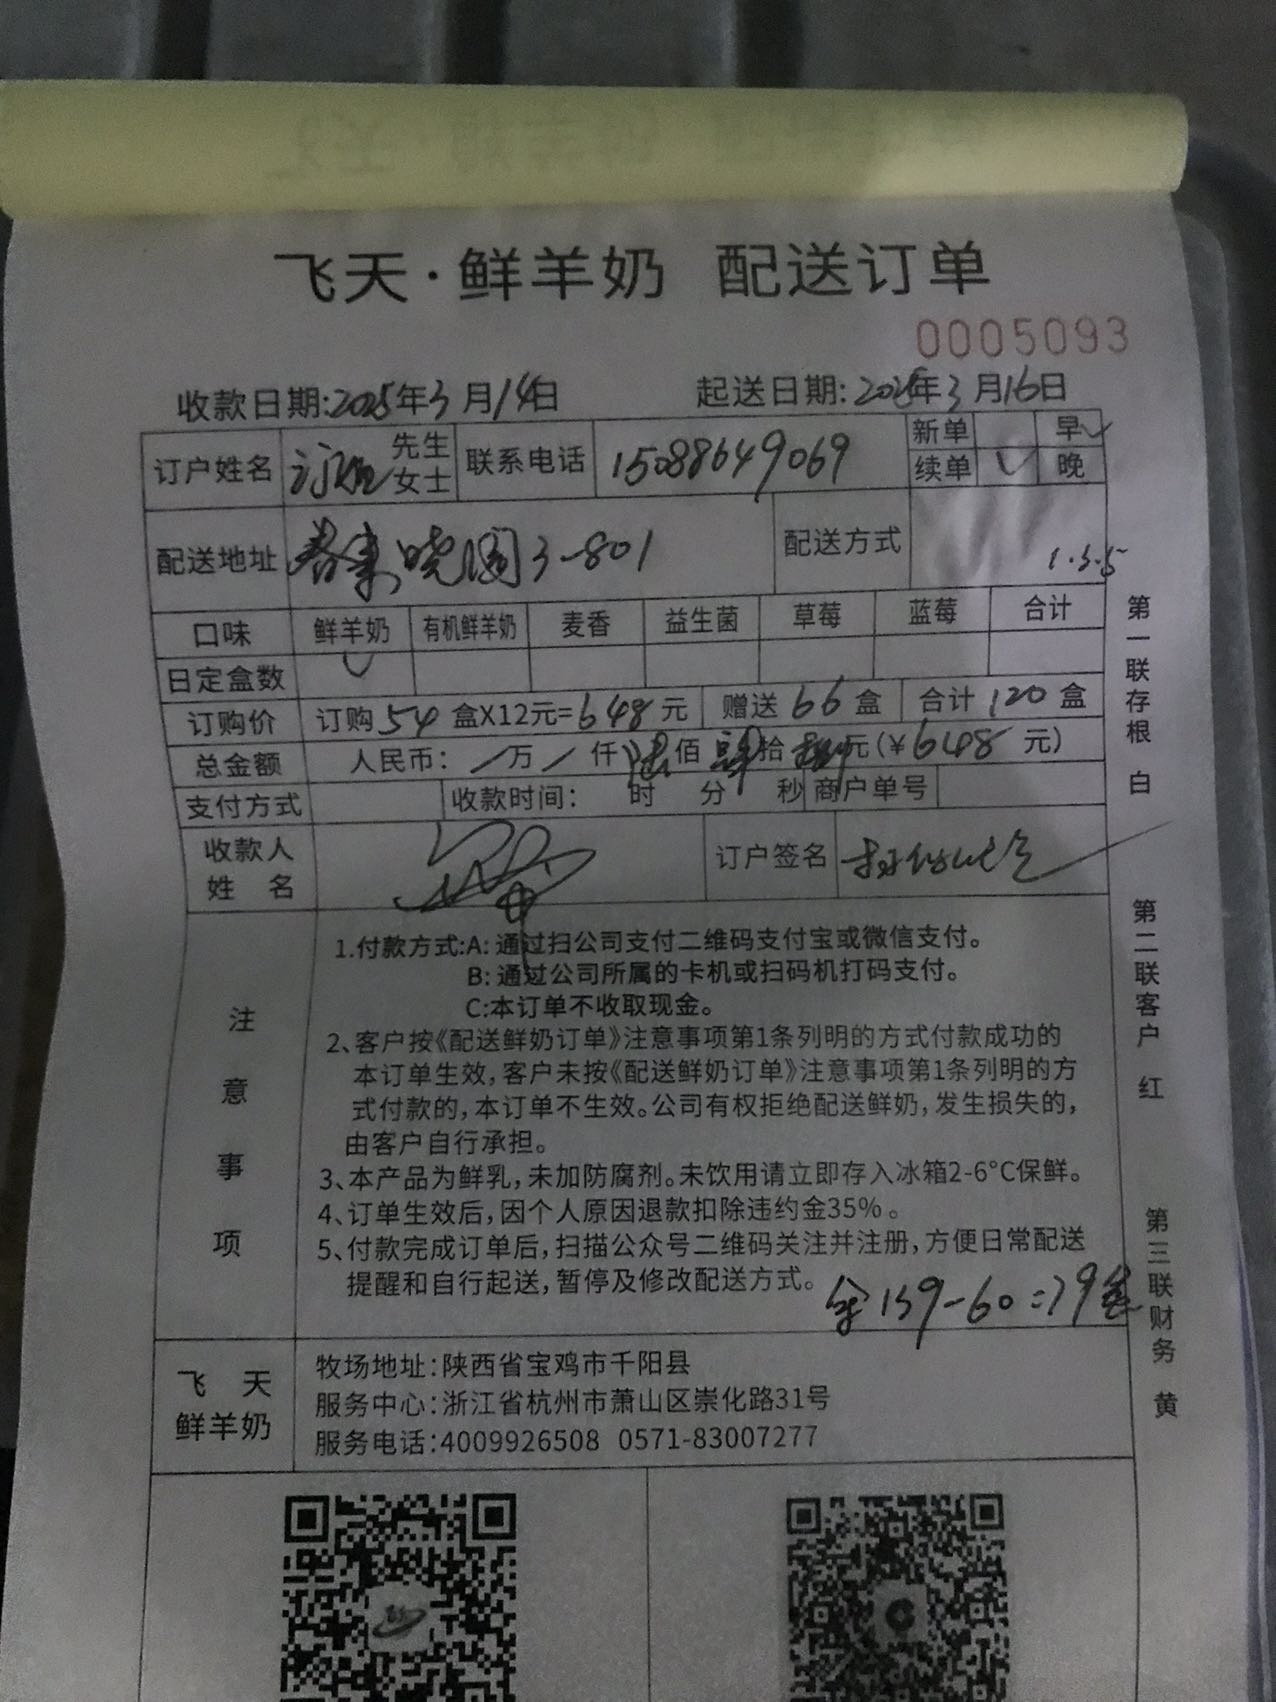 飞天·鲜羊奶 配送订单
0005093
收款日期:2025年3月14日 起送日期:2025年3月16日
订户姓名 先生 女士 联系电话 15088649069 新单 早✓
续单 ✓ 晚
配送地址 春来晓园3-801 配送方式 1.3.5
口味 鲜羊奶 有机鲜羊奶 麦香 益生菌 草莓 蓝莓 合计
日定盒数 ✓
订购价 订购54盒X12元=648元 赠送66盒 合计120盒
总金额 人民币: /万/仟陆佰肆拾捌元(¥648元)
支付方式 收款时间: 时 分 秒 商户单号
收款人姓名 订户签名
注意事项
1.付款方式:A:通过扫公司支付二维码支付宝或微信支付。
B:通过公司所属的卡机或扫码机打码支付。
C:本订单不收取现金。
2、客户按《配送鲜奶订单》注意事项第1条列明的方式付款成功的
本订单生效,客户未按《配送鲜奶订单》注意事项第1条列明的方
式付款的,本订单不生效。公司有权拒绝配送鲜奶,发生损失的,
由客户自行承担。
3、本产品为鲜乳,未加防腐剂。未饮用请立即存入冰箱2-6°C保鲜。
4、订单生效后,因个人原因退款扣除违约金35%。
5、付款完成订单后,扫描公众号二维码关注并注册,方便日常配送
提醒和自行起送,暂停及修改配送方式。
余139-60=79盒
飞天鲜羊奶
牧场地址:陕西省宝鸡市千阳县
服务中心:浙江省杭州市萧山区崇化路31号
服务电话:4009926508 0571-83007277
第一联存根 白
第二联客户 红
第三联财务 黄